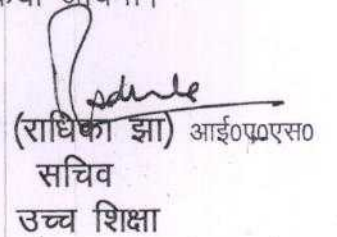 (राधिका झा) आई०ए०एस०
सचिव
उच्च शिक्षा